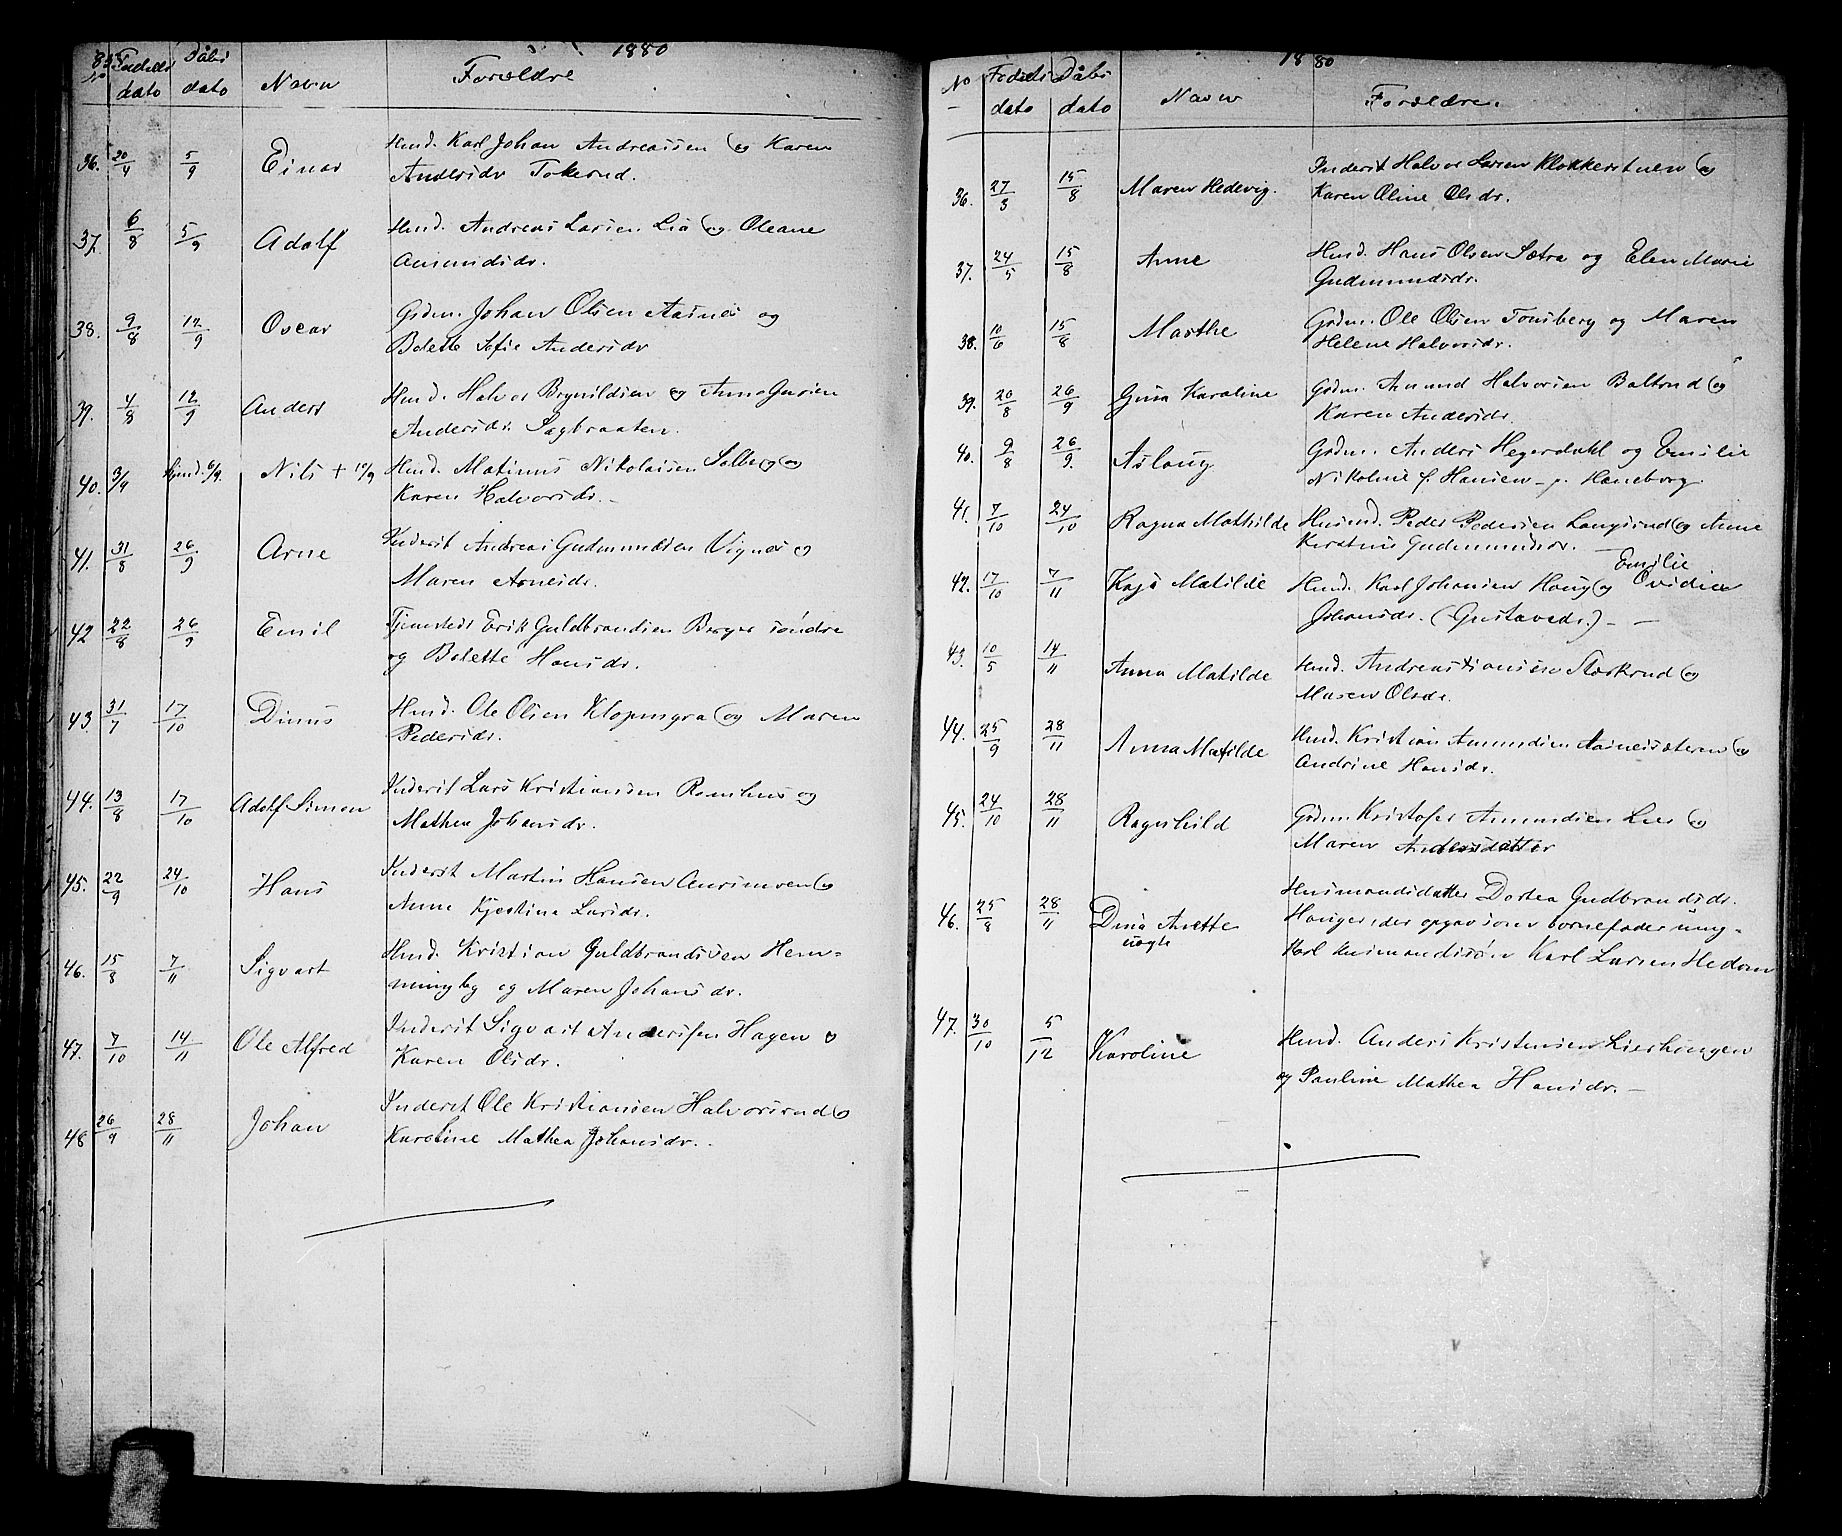 1880
No Fødsels dato Dåbs dato Navn Forældre
36. 20/4 5/9 Einar Husmd. Karl Johan Andreassen og Karen
Andersdr Tokerud.
37. 6/8 5/9 Adolf Husmd. Andreas Larsen Lia og Oleane
Amundsdr.
38. 9/8 12/9 Oscar Gdmd. Johan Olsen Aasnes og
Bolette Sofie Andersdr
39. 4/8 12/9 Anders Husmd. Halvor Brynildsen og Anne
Andersdr. Sagbraaten.
40. 3/9 Hjmd. 6/9. Nils + 17/9 Husmd. Matinus Nikolaisen Solberg og
Karen Halvorsdr. –
41. 31/8 26/9 Arne Inderst Andreas Gudmundsen Vignes og
Maren Arnesdr.
42 22/8 26/9 Emil Tjenestedr. Erik Guldbrandsen Berger søndre
og Bolette Hansdr.
43. 31/7 17/10 Dinus Husmd. Ole Olsen Klopmyra og Maren
Pedersdr.
44. 13/8 17/10 Adolf Simon Inderst Lars Kristiansen Romhus og
Mathea Johansdr.
45. 22/9 24/10 Hans Inderst Martin Hansen Aursmoen og
Anne Kjestina Larsdr.
46. 15/8 7/11 Sigvart Husmd. Kristian Guldbrandsen Hem-
ningby og Maren Johansdr.
47. 7/10 14/11 Ole Alfred Inderst Sigvart Andersen Hagen og
Karen Olsdr.
48 26/9 28/11 Johan Inderst Ole Kristiansen Halvorsrud og
Karoline Mathea Johansdr.
1880
No Fødsels dato Dåbs dato Navn Forældre.
36. 27/3 15/8 Maren Hedevig. Inderst Halvor Larsen Klokkerstuen og
Karen Oline Olsdr.
37. 24/5 15/8 Anne Husmd. Hans Olsen Sætra og Elen Marie
Gudmundsdr.
38. 10/6 15/8 Marthe Gdmd. Ole Olsen Tonsberg og Maren
Helene Halvorsdr.
39. 20/8 26/9 Gina Karoline Gdmd. Amund Halvorsen Baltrud og
Karen Andersdr.
40. 9/8 26/9. Aslaug Gdmd. Anders Hegerdahl og Emilie
Nikoline f. Hansen – p. Haneborg.
41. 7/10 24/10 Ragna Mathilde Husmd. Peder Pedersen Langsrud og Anne
Kirstine Gudmundsdr. –
42. 17/10 7/11 Kaja Matilde Husmd. Karl Johansen Haug og Emilie Ovidia
Johansdr. (Gustavsdr.) – –
43. 10/5 14/11 Anna Matilde Husmd. Andreas Hansen Starkerud og
Maren Olsdr.
44. 25/9 28/11 Anna Matilde Husmd. Kristian Amundsen Aasnessæteren og
Andrine Hansdr.
45. 24/10 28/11 Ragnhild Gdmd. Kristofer Amundsen Lier og
Maren Andersdatter
46. 25/8 28/11 Dina Anette uægte Husmandsdatter Dortea Gudbrandsdr.
Hanger, der opgav som barnefader ung-
karl Husmandssøn Karl Larsen Hedem
47. 30/10 5/12 Karoline Husmd. Anders Kristensen Lierhaugen
og Pauline Mathea Hansdr. –